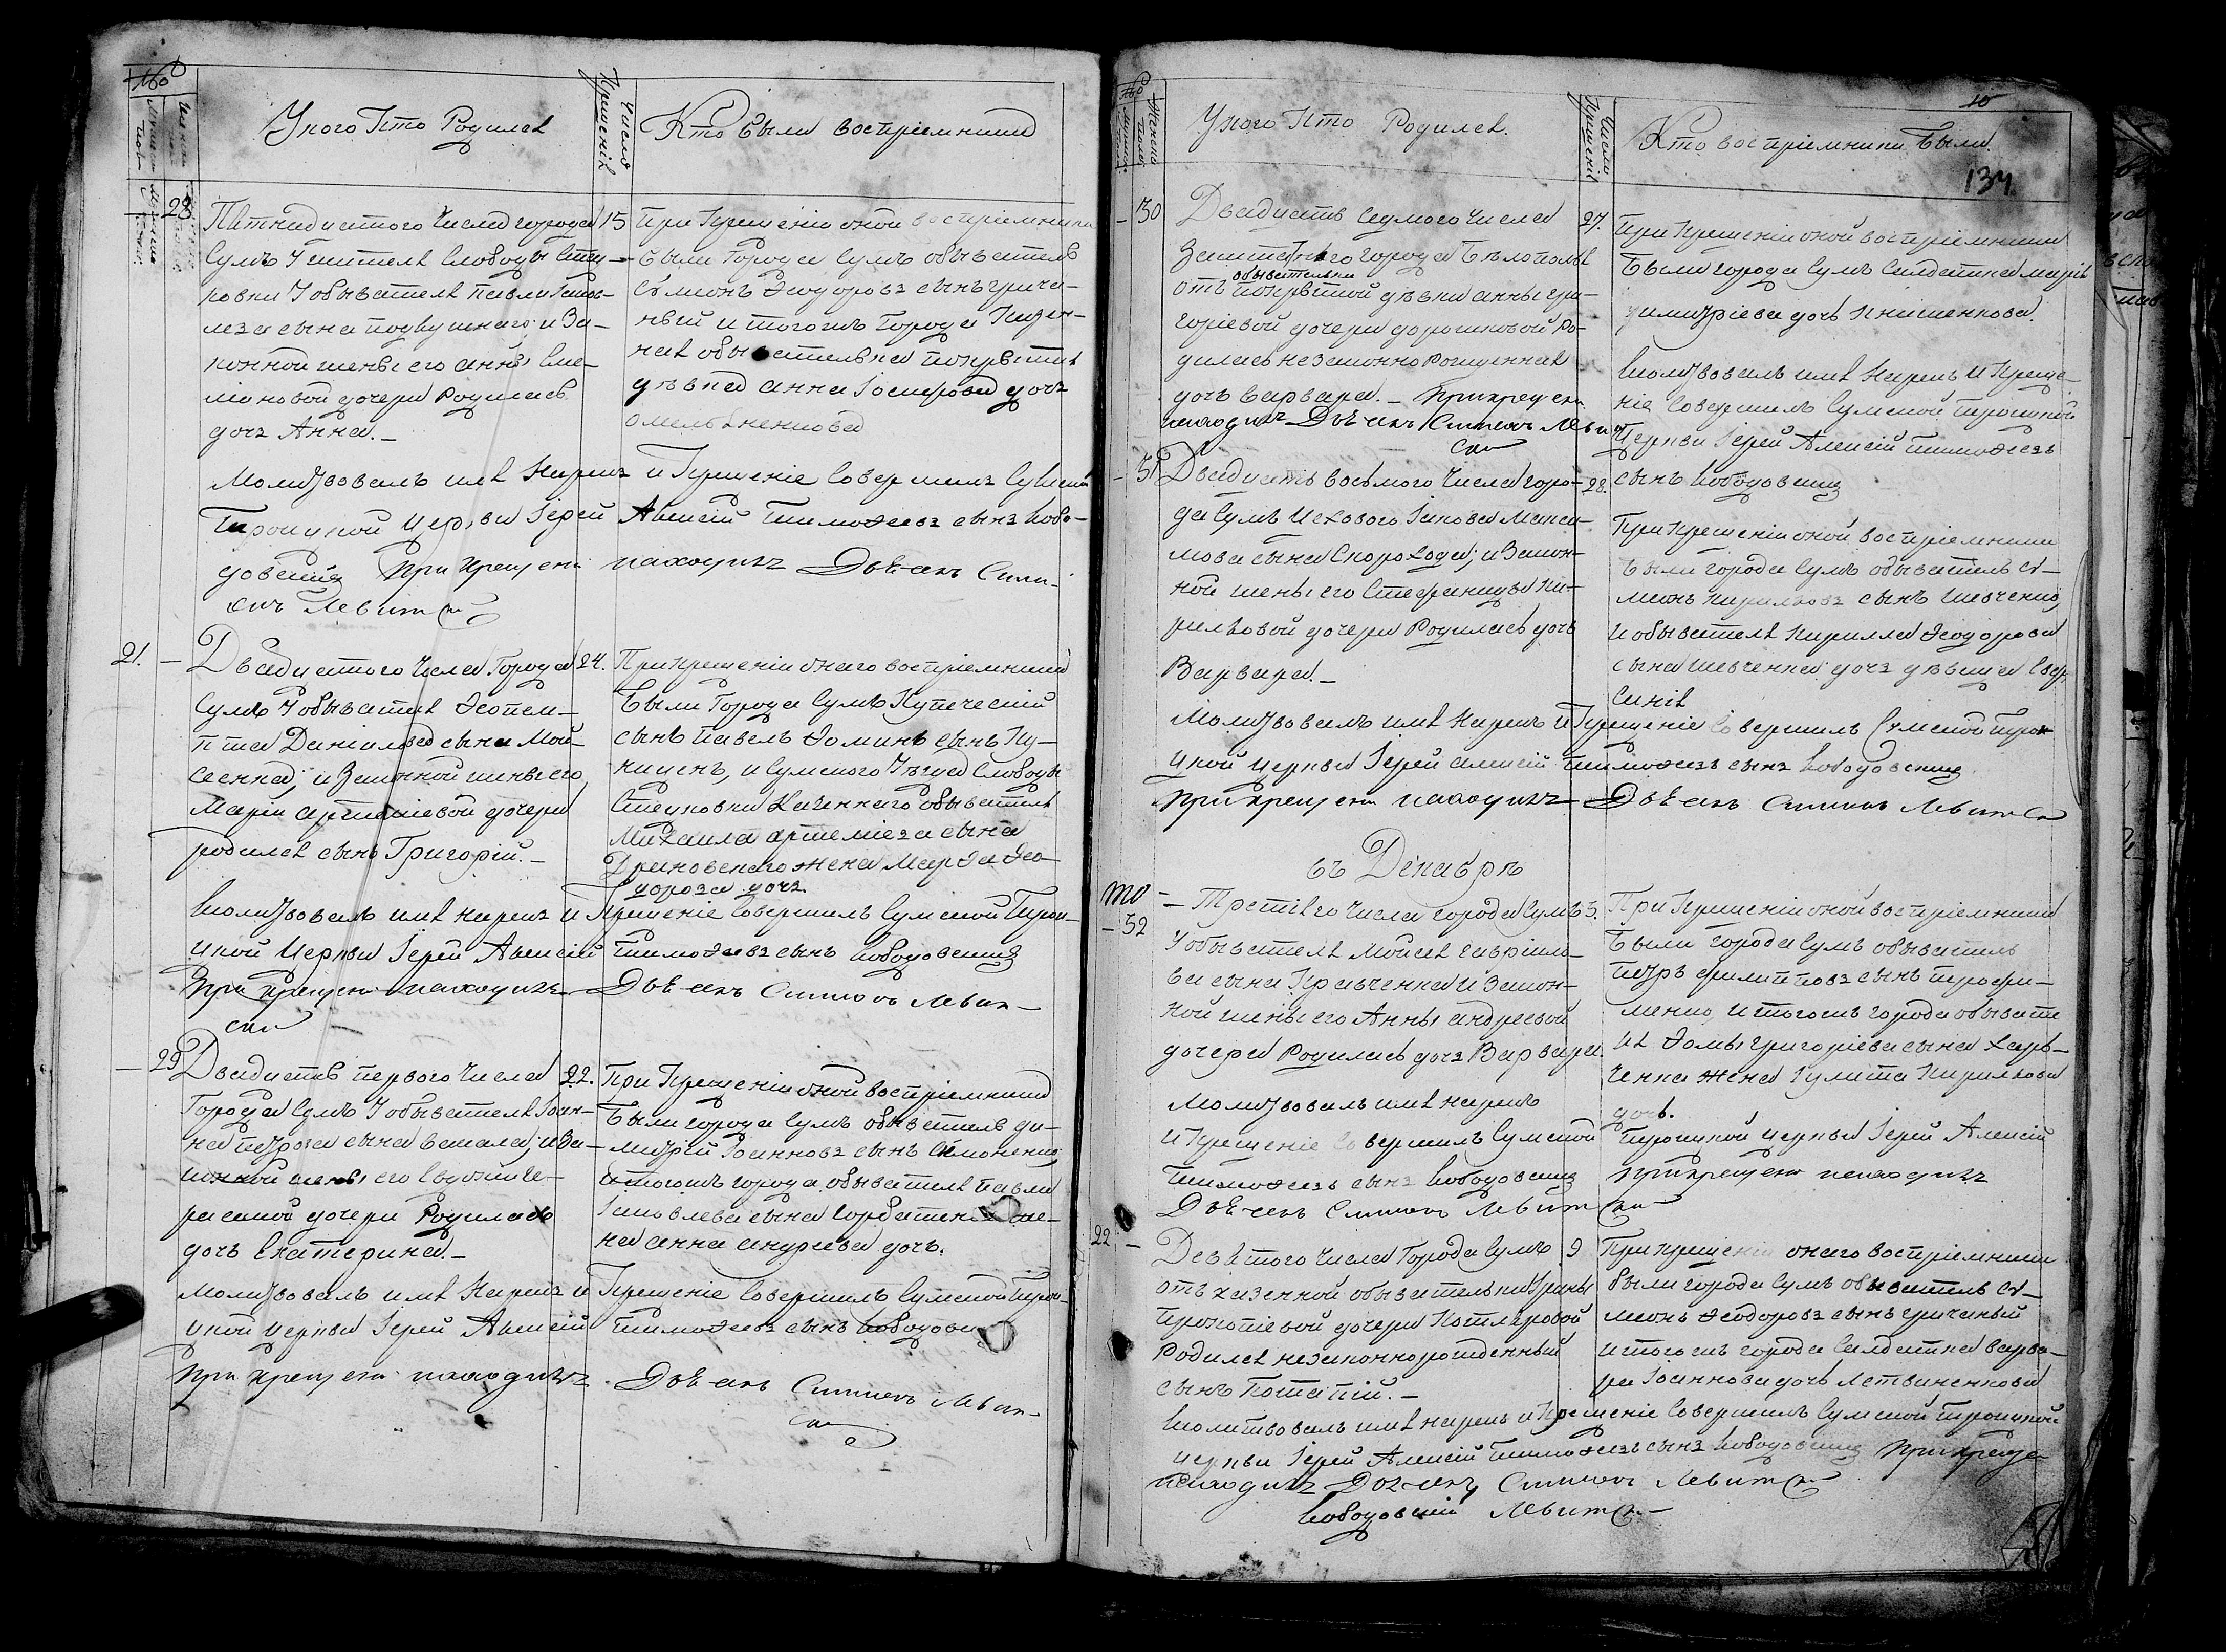 №
Женска
Мужеска
У кого кто Родился
Число Крещенія
Кто были воспріемники
28. Пятнадцатого Числа города 15
Сумъ Жителя Слободы
ковки У обывателя Павла
сына и За-
конной жены его Анны Сим-
іоновой дочери Родилась
дочь Анна.-
При Крещеніи оной воспріемники
были Города Сумъ обыватель
Сѵмионъ Ѳеодоровъ сынъ Гриче-
ный и того жъ Города Казен-
ная обывателька
дѣвка Анна Іосифова дочь
Омельяненкова
Молитвовалъ имя Нарекъ и Крещеніе Совершилъ Сумской
Троицкой Церкви Іерей Алексій Тимоѳеевъ сынъ Собо-
довскій При крещеніи находился Дьячекъ Сими-
онъ Левитск
21. - Двадцатого Числа Города 24.
Сумъ У обывателя Ѳеопем-
пта Данилова сына Мой-
сеенка, и Законной жены его
Маріи Артеміевой дочери
родился сынъ Григорій.-
При крещеніи онаго воспріемники
были Города Сумъ Купеческій
сынъ Павелъ Ѳоминъ сынъ Ку-
ницынъ, и Сумского Уѣзда Слободы
Стецковки Казеннаго обывателя
Михаила Артеміева сына
Драновскаго жена Марѳа Ѳео-
дорова дочь.
Молитвовалъ имя нарекъ и Крещеніе Совершилъ Сумской Трои-
цкой Церкви Іерей Алексій Тимоѳеевъ сынъ Сободовскій
При крещеніи находился Дьячекъ Симионъ Левит-
ски
- 29 Двадцать первого Числа 22.
Города Сумъ У обывателя Іоан-
на Петрова сына; и За-
конной жены его Евдокіи Ге-
расимой дочери Родилась
дочь Екатерина.-
При Крещеніи оной воспріемники
Были города Сумъ обыватель Ди-
митрій Іоанновъ сынъ Симоненко,
и того жъ города обывателя Павла
Іаковлева сына Горбатенка же-
на Анна Андреева дочь.
Молитвовалъ имя Нарекъ и Крещеніе Совершилъ Сумской Трои-
цкой церкви Іерей Алексій Тимоѳеевъ сынъ Сободовскій
При крещеніи находился Дьячекъ Симионъ Левит-
ски
№
Женска пола
У кого кто Родился.
Число Крещенія
Кто воспріемники были.
10
134
- 30 Двадцать седмого Числа 27.
Заштатного города Бѣлополья
обывательки
отъ дѣвки Анны Гри-
горіевой дочери Дорошковой Ро-
дилась незаконно рожденная
дочь Варвара.- При крещеніи
находился Дьячекъ Симионъ Левит
ски
При Крещеніи оной воспріемники
Были города Сумъ Салдатка Марія
Димитріева дочь Книшенкова.
Молитвовалъ имя Нарекъ и Креще-
ніе Совершилъ Сумской Троицкой
Церкви Іерей Алексій Тимоѳеевъ
сынъ Сободовскій
- 31 Двадцать восьмого Числа горо- 28.
да Сумъ Іакова Макси-
мова сына Скорохода; и Закон-
ной жены его Стефаниды Ки-
риловой дочери Родилась дочь
Варвара.-
При Крещеніи оной воспріемники
были города Сумъ обыватель Сѵ-
міонъ Кириловъ сынъ Шевченко,
и обывателя Кирилла Ѳеодорова
сына Шевченка дочь дѣвица Евфр
синія
Молитвовалъ имя Нарекъ и Крещеніе Совершилъ Сумской Трои
цкой церкви Іерей Алексій Тимоѳеевъ сынъ Сободовскій
При крещеніи находился Дьячекъ Симионъ Левитск
въ Декабрѣ
- 32 - Третіего Числа города Сумъ 3.
У обывателя Мойсея Гавріило-
ва сына Кравченка и Закон-
ной жены его Анны Андреевой
дочери Родилась дочь Варвара.
При Крещеніи оной воспріемники
Были города Сумъ обыватель
Петръ Филиповъ сынъ Трофи-
менко, и того жъ города обывате
ля Ѳомы Григоріева сына Харь-
ченка жена Іулита Кирилова
дочь.
Молитвовалъ имя нарекъ
и Крещеніе Совершилъ Сумской Троицкой церкви Іерей Алексій
Тимоѳеевъ сынъ Сободовскій При крещеніи находился
Дьячекъ Симионъ Левитски
22 - Девятого Числа Города Сумъ 9
отъ казенной обывательки Ирины
Прокопіевой дочери Котляровой
Родился незаконнорожденный
сынъ Потапій.-
При крещеніи онаго воспріемники
были города Сумъ обыватель Сѵ-
міонъ Ѳеодоровъ сынъ Гриченый
и того жъ города Салдатка Варва-
ра Іоаннова дочь Летвиненкова
Молитвовалъ имя нарекъ и Крещеніе Совершилъ Сумской Троицкой
церкви Іерей Алексій Тимоѳеевъ сынъ Сободовскій При креще
находился Дьячекъ Симионъ Левитск
Сободовскій Левитск